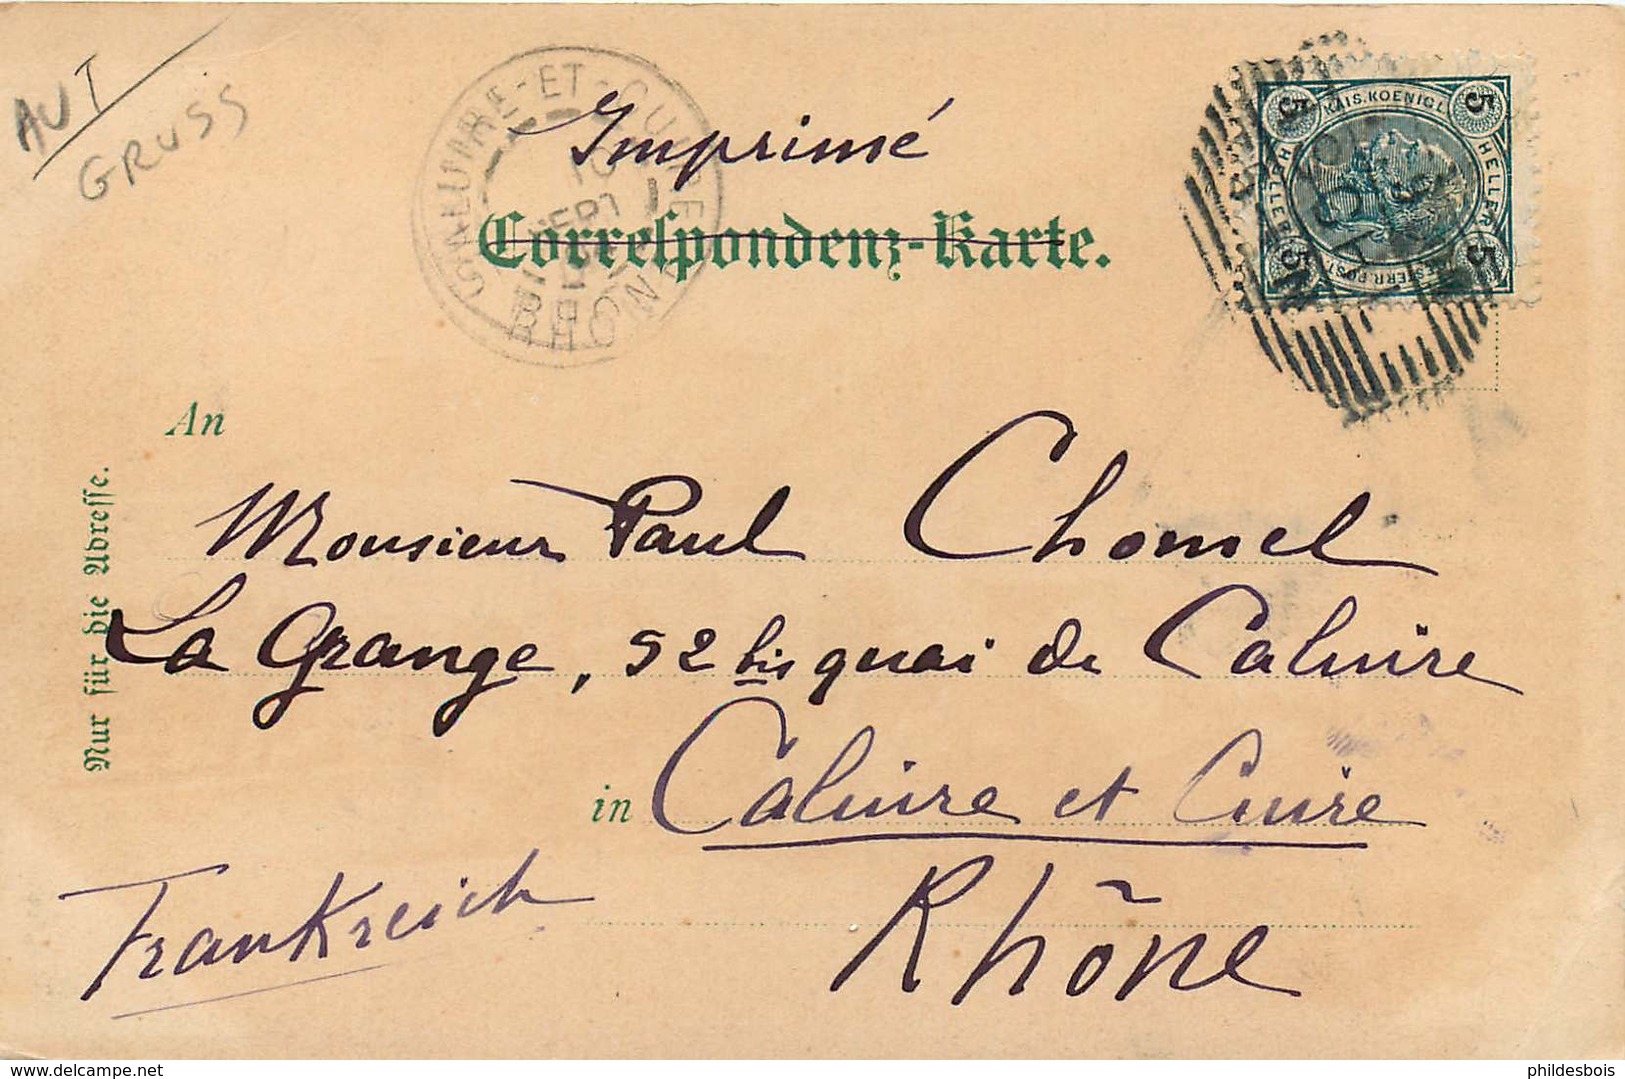 AUT
GRUSS
CALUIRE-ET-CUIRE
10
SEPT
RHONE
Imprimé
Correspondenz-Karte.
5 KAIS. KOENIGL. 5
HELLER HELLER
5 OESTERR. POST 5
An
Nur für die Adresse.
Monsieur Paul Chomel
La Grange, 52 bis quai de Caluire
in Caluire et Cuire
Rhône
Frankreich
delcampe.net
phildesbois